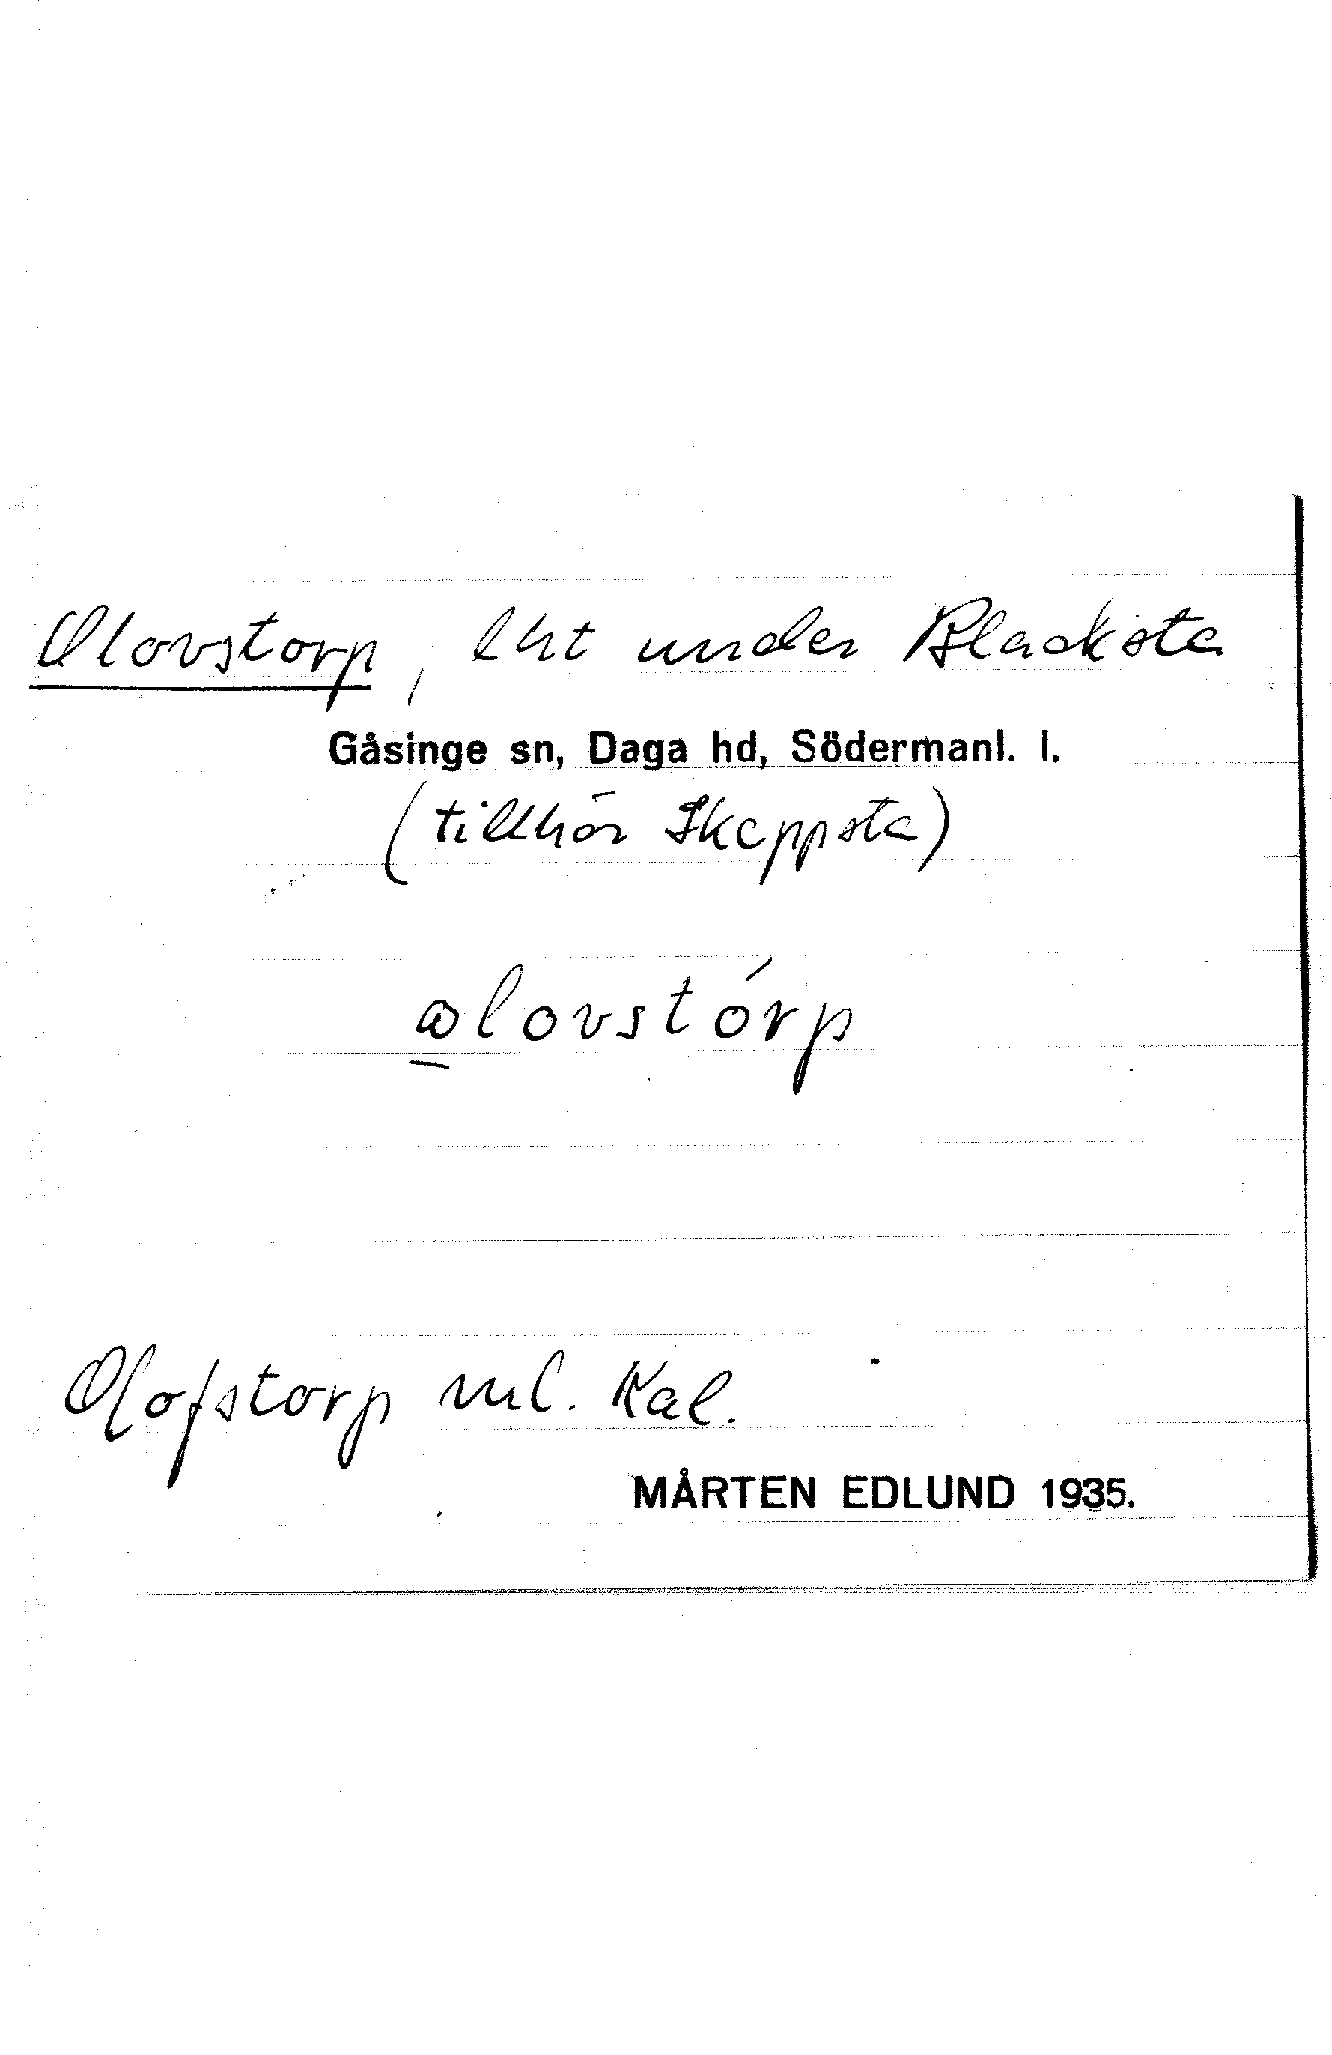 Olovstorp, lht under Blacksta
Gåsinge sn, Daga hd, Södermanl. l.
(tillhör Skeppsta)
ωlovstórp
Olofstorp ml. Kal.
MÅRTEN EDLUND 1935.